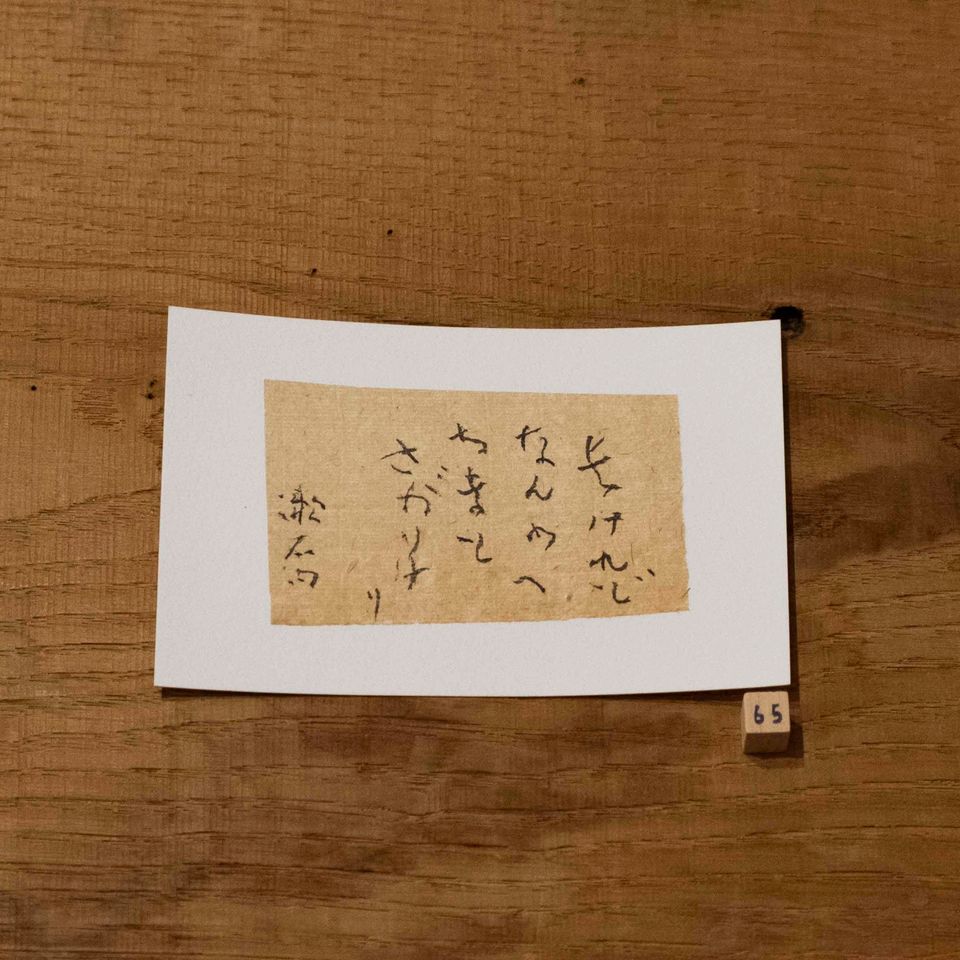 長けれど
なんのへ
ちまと
さがりけ
り
漱石
65